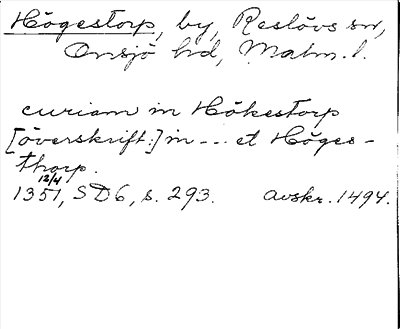 Högestorp, by, Reslövs sn,
Onsjö hd, Malm. l.
curiam in Hökestorp
[överskrift:] in --- et Höges-
thorp.
1351 12/4, SD 6, s. 293. avskr. 1494.